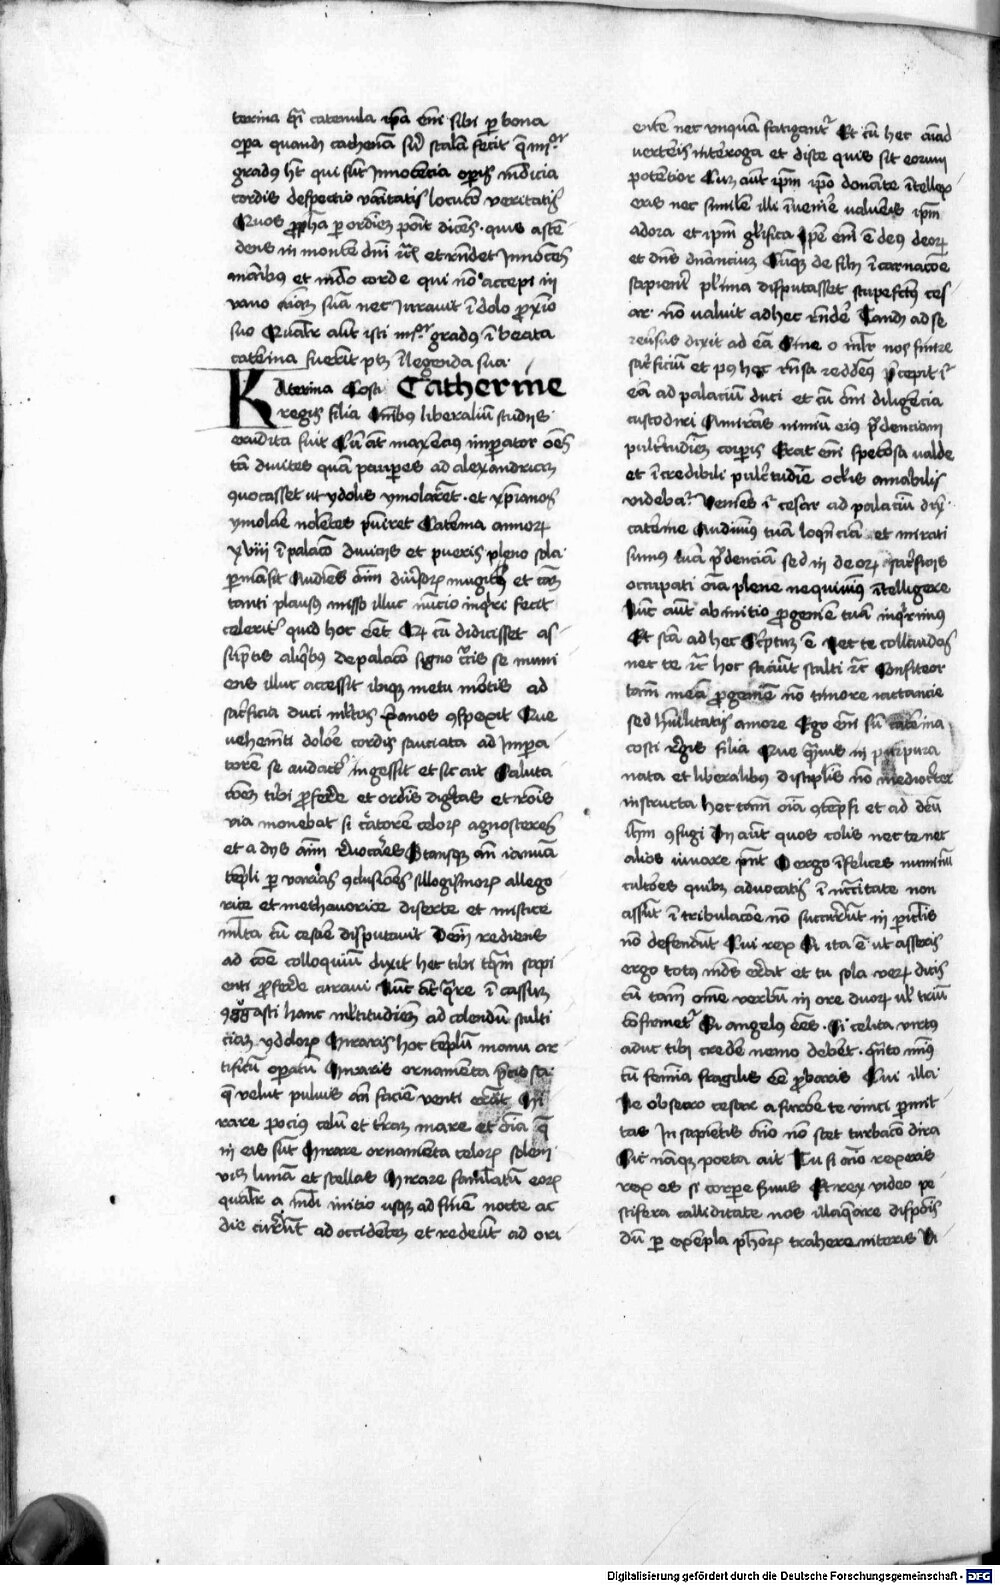 terina qi catenula ipa eni sibi per bona
opera quandā cathenā sibi scalā fecit que iiiior
gradus ht qui sūt Innocēcia operis mūdicia
cordis despectio vanitatis locucō veritatis
Quos propha per ordinē poīt dicēs quis ascē
dens in montē dni et rndet Innocēs
manibus et mūdo corde qui nō accepit in
vano aīam suā nec iuravit in dolo proxīo
suo Qualr aūt isti iiiior gradus in beata
caterina fuerīt ptz in legenda sua
Katerina Costi Catherine
regis filia omībus liberaliū studiis
erudita fuit Cū aūt maxencius imperator oēs
tā divites quam pauperes ad alexandriam
quocasset ut ydolis ymolarēt et xpianos
ymolare nolētes puniret Caterina annorum
xviii in palacō diviciis et pueris pleno sola
permāsit Audiēs aīaliū diversorum mugitus et cantā
tanti plausus misso illuc nūcio inquiri fecit
celeriter quid hoc eēt Quod cū didicisset as
sūptis aliquibus de palacō signo crucis se muni
ens illuc accessit ibique metu mortis ad
sacrificia duci multos xpianos conspexit Que
vehemēti dolore cordis sauciata ad impera
torē se audacter ingessit et sic ait Saluta
cōem tibi proferre et ordinis dignitas et rōnis
via monebat si creatorē celorum agnosceres
et a diis aīm revocares Stansque ante ianuā
templi per varias conclusiones sillogismorum allego
rice et methavorice diserte et mistice
multa cū cesare disputavit Deinde rediens
ad cōe colloquiū dixit hec tibi tamquam sapi
enti proferre curavi Nūc aūt quare in cassum
congregasti hanc multitudinem ad colendū stulti
ciam ydolorum Miraris hoc templū manu ar
tificū operatū Miraris ornamēta preciosa
que velut pulvis ante faciem venti erunt Mi
rare pocius celū et terram mare et omīa que
in eis sunt Mirare ornamēta celorum solem
vz lunā et stellas Mirare famulatū eorum
qualr a mūdi initio usque ad finem nocte ac
die currūt ad occidentem et redeūt ad ori
entē nec unquā fatigantur Et cū hec aīad
verteris interroga et disce quis sit eorum
potencior Cum aūt ipm ipo donante intellex
eris nec similē illi invenire valueris ipm
adora et ipm glifica Ipe eni e deus deorum
et dns dnancium Cūque de filii incarnacōe
sapienter plurima disputasset stupefctus ces
ar nō valuit ad hec rndere Tandē ad se
reversus dixit ad eā Sine o mulier nos finire
sacrificiū et post hoc responsa reddemus Precepit igitur
eā ad palaciū duci et cū omni diligencia
custodiri Admirās nimiū eius prudenciam
pulcritudinē corporis Erat eni speciosa valde
et incredibili pulcritudine oculis amabilis
videbatur Veniēs igitur cesar ad palaciū dixit
caterine Audivimus tuā loquenciā et mirati
sumus tuā prudenciā sed in deorum sacrificiis
occupati oīa plene nequivimus intelligere
Nūc aūt ab inicio progeniē tuā inquirimus
Et sca ad hec Scriptum e Nec te collaudes
nec te hoc faciūt stulti Confiteor
tamē meā progeniē nō timore iactancie
sed humilitatis amore Ego eni sū caterina
costi regis filia Que quamvis in purpura
nata et liberalibus disciplinis nō mediocriter
instructa hec tamē oīa contempsi et ad deū
ihm confugi Dii aūt quos colis nec te nec
alios iuvare pnt O ergo infelices numinū
cultores quibus advocatis in necessitate non
assūt in tribulacōe nō succurrūt in periculis
nō defendūt Cui rex Si ita e ut asseris
ergo totus mūdus errat et tu sola verum dicis
cū tamē omne verbū in ore duorum vel triū
confirmetur Si angelus esses Si celica virtus
adhuc tibi credere nemo deberet quāto minus
cū femina fragilis esse probaris Cui illa
Ne obsecro cesar a furore te vinci permit
tas In sapientis aīo nō stet turbacō dira
Sic nāque poeta ait Tu si aīo rexeris
rex es si corpore servus Et rex video pe
stifera calliditate nos illaqueare disponis
dū per exempla phorum trahere niteris Vi
Digitalisierung gefördert durch die Deutsche Forschungsgemeinschaft - DFG